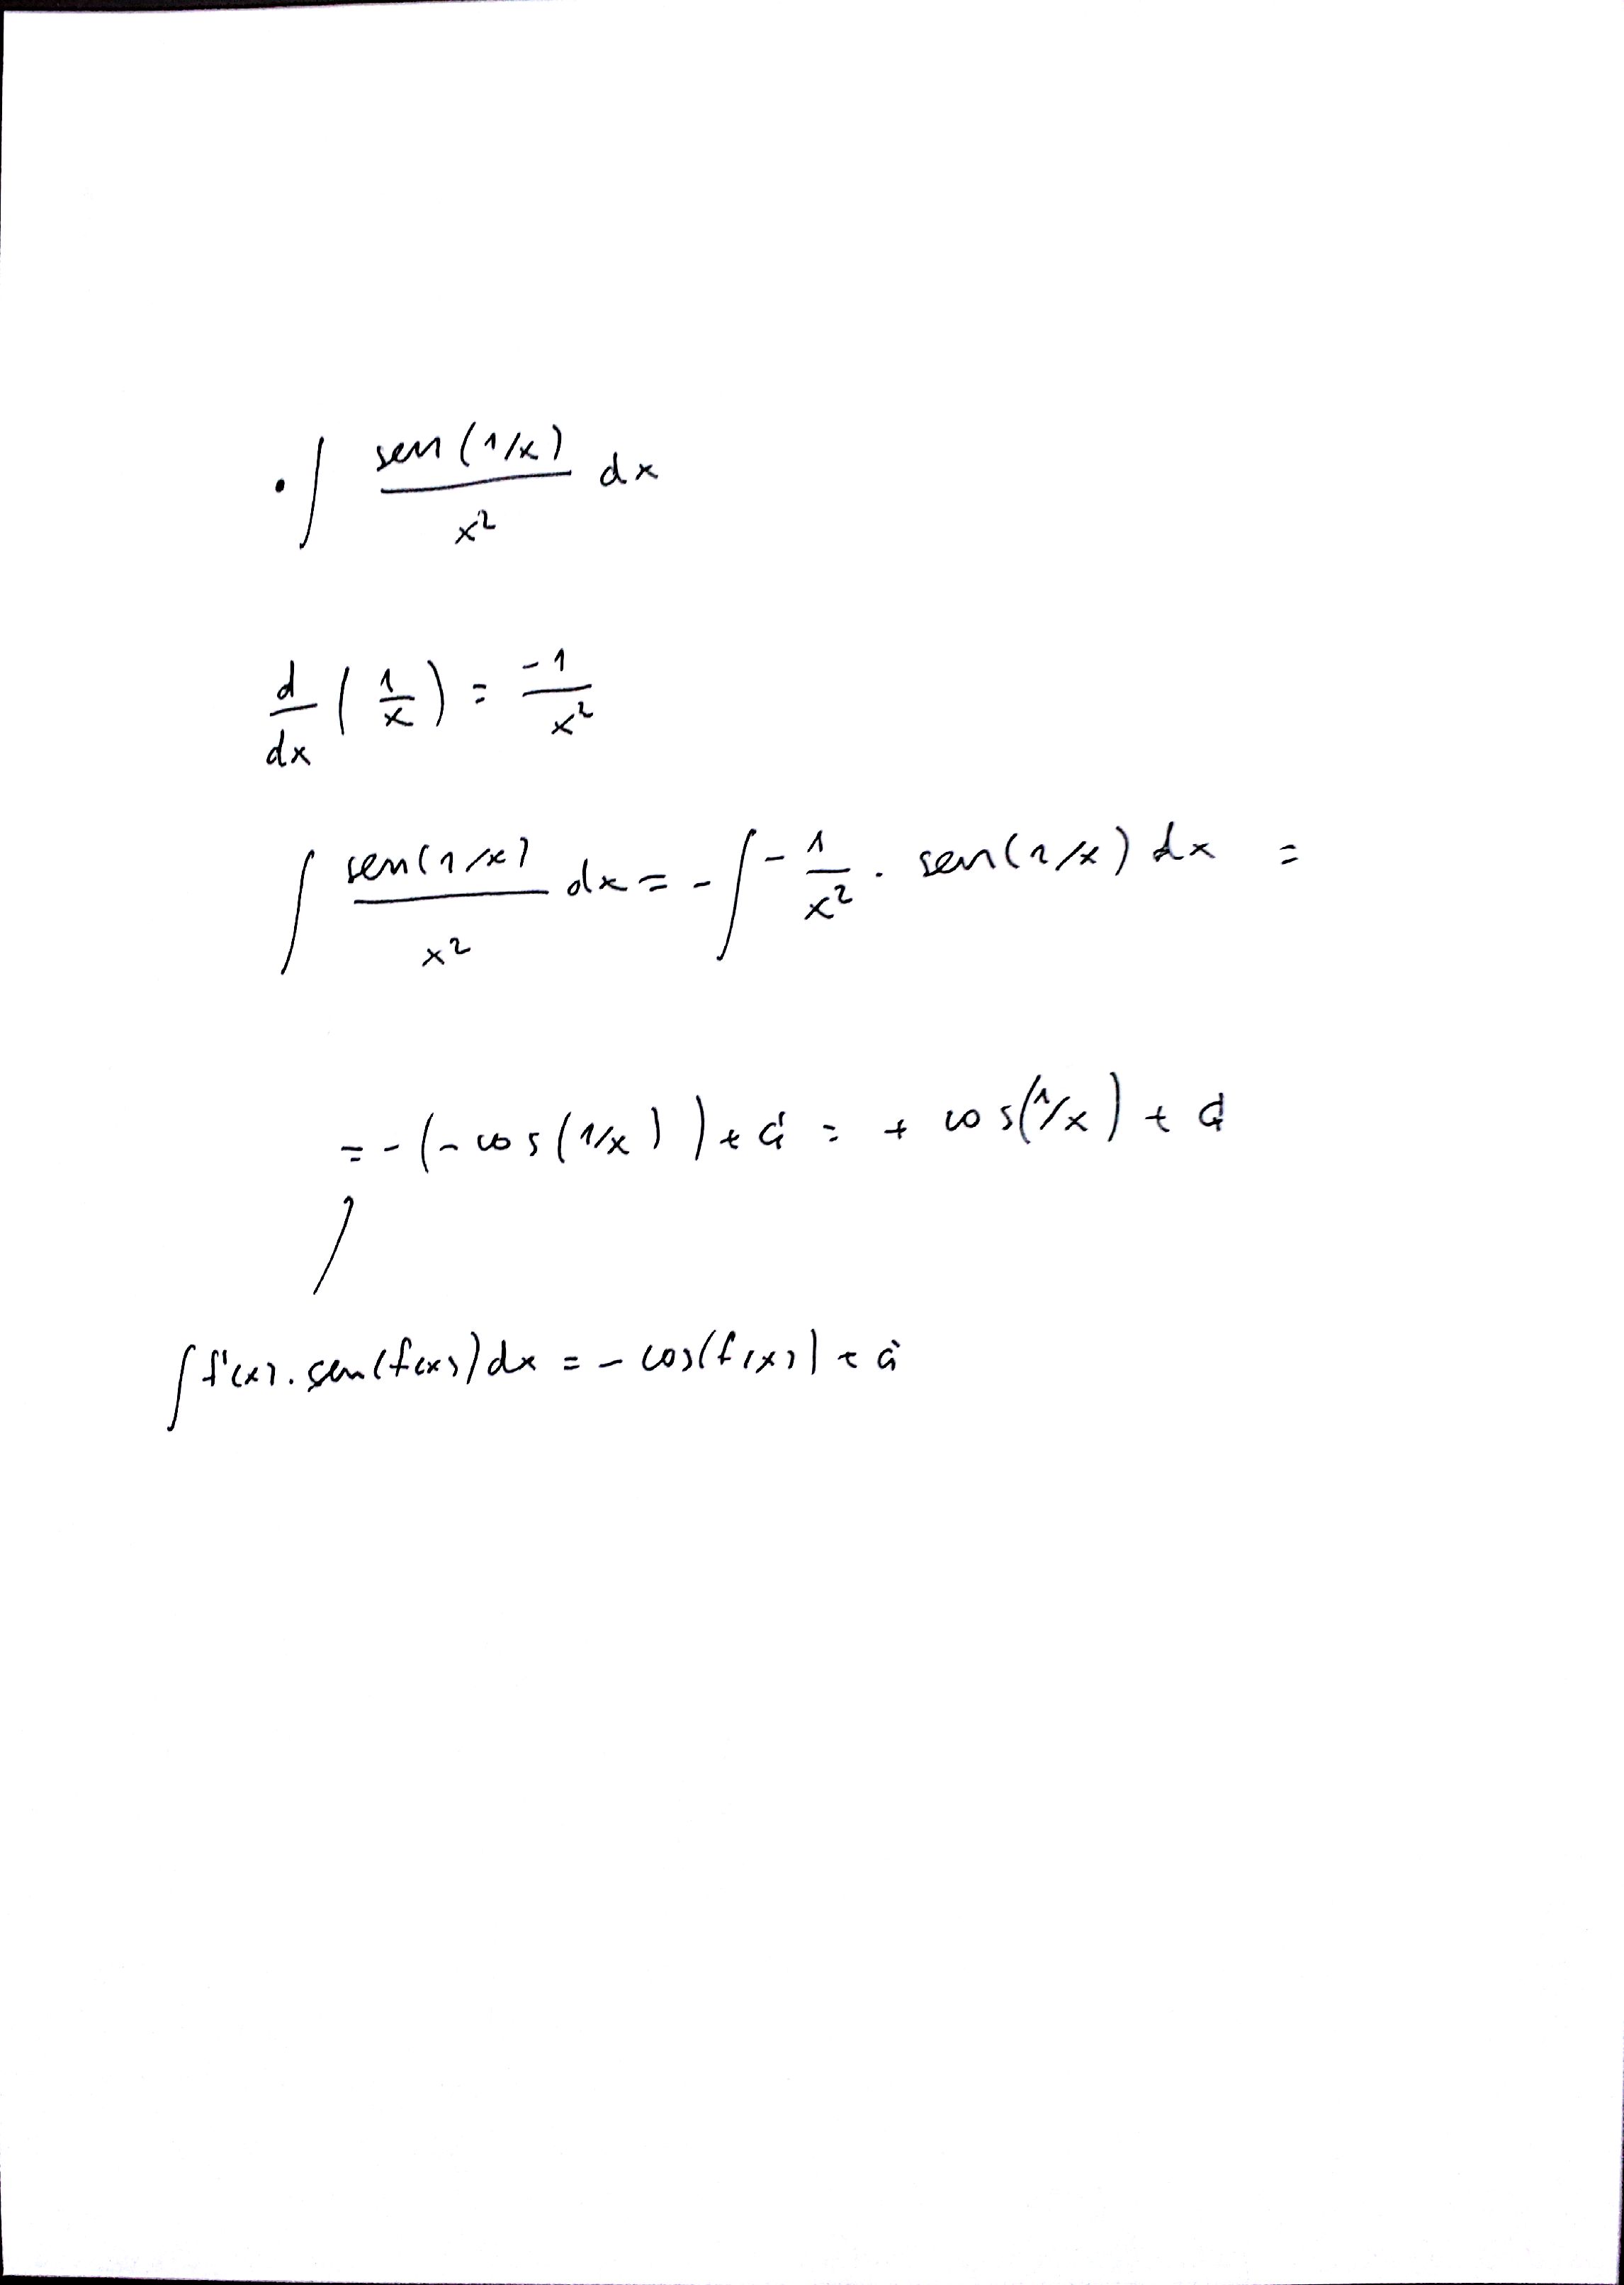 • ∫ sen(1/x)/x² dx
d/dx (1/x) = -1/x²
∫ sen(1/x)/x² dx = - ∫ - 1/x² · sen(1/x) dx =
= - (- cos(1/x)) + C = + cos(1/x) + C
∫ f'(x) · sen(f(x)) dx = - cos(f(x)) + C